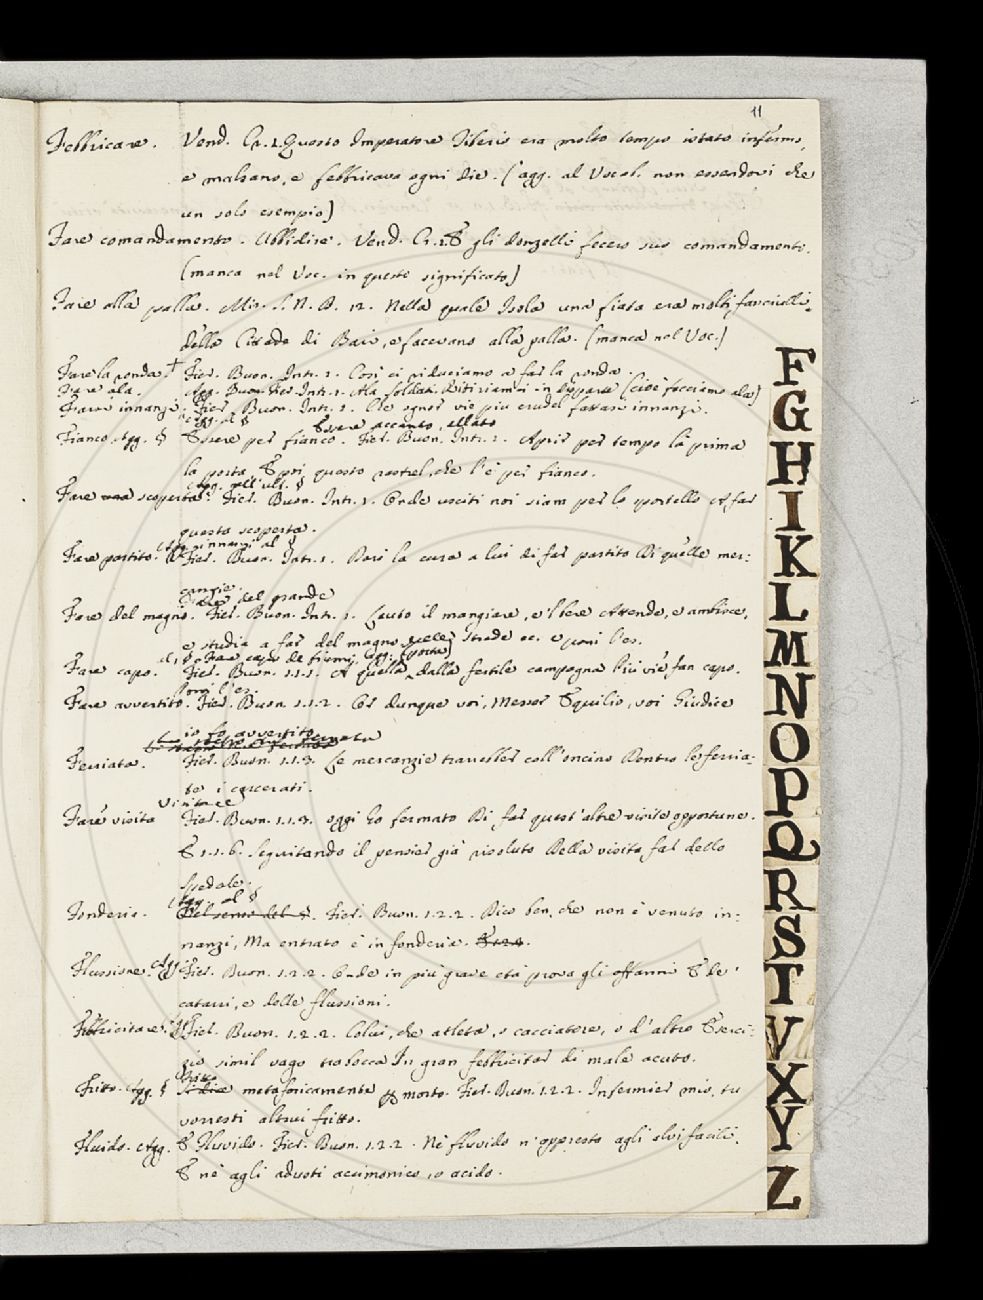 11
Febbricare. Vend. Cr. 1. Questo Imperatore Tiberio era molto tempo istato infermo,
e malsano, e febbricava ogni die. (agg. al Vocab. non essendovi che
un solo esempio)
Fare comandamento. Ubbidire. Vend. Cr. 28 gli donzelli fecero suo comandamento.
(manca nel Voc. in questo significato)
Fare alla palla. Mir. S. N. B. 12. Nella quale Isola una fiata era molti fanciulli
della Cittade di Bari, e facevano alla palla. (manca nel Voc.)
Fare la ronda. † Fier. Buon. Intr. 2. Così ci riduciamo a far la ronda.
Fare ala. Agg. Buon. Fier. Intr. 1. Ala soldati. Ritiriamci in (cioè facciamo ala)
Farsi innanzi. Fier. Buon. Intr. 2. Che ognor vie più crudel fattasi innanzi.
agg. al § Essere accanto, allato
Fianco. Agg. § Essere per fianco. Fier. Buon. Intr. 2. Aprir per tempo la prima
la porta, E poi questo rastrel, che l'è per fianco.
Agg. nell'ult. §
Fare una scoperta. Fier. Buon. Intr. 1. Onde usciti noi siam per lo portello A far
questa scoperta.
innanzi al §
Fare partito. Fier. Buon. Intr. 1. Dari la cura a lui di far partito Di quelle mer-
canzie.
Fare del grande
Fare del magno. Fier. Buon. Intr. 1. Lauto il mangiare, e 'l bere Attende, e ambisce,
e studia a far del magno per le strade ec. e poni l'es.
al § Fare capo de fiumi, agg. (posta)
Fare capo. Fier. Buon. 1.1.1. A quella, dalla fertile campagna Più vie fan capo.
poni l'es.
Fare avvertito. Fier. Buon. 1.1.2. Or dunque voi, Messer Equilio, voi Giudice
io fo avvertito.
Ferriata. Fier. Buon. 1.1.3. Le mercanzie travaller coll'oncino Dentro le ferria-
te i carcerati.
Visitare
Fare visita Fier. Buon. 1.1.3. oggi ho fermato Di far quest'altre visite opportune.
E 1.1.6. Seguitando il pensier già risoluto Della visita far dello
spedale.
Agg. al §
Fonderia. Nel senso del §. Fier. Buon. 1.2.2. Dico ben, che non è venuto in-
nanzi, Ma entrato è in fonderia. E 1.2.4.
Flussione. Agg. Fier. Buon. 1.2.2. Onde in più grave età prova gli affanni E de'
catarri, e delle flussioni.
Febbricitare. Fier. Buon. 1.2.2. Colui, che atleta, o cacciatore, o d'altro Eserci-
zio simil vago trabocca In gran febbricitar di male acuto.
Fritto
Fritto. Agg. § Si dice metaforicamente per morto. Fier. Buon. 1.2.2. Infermier mio, tu
vorresti altrui fritto.
Fluido. Agg. E Fluvido. Fier. Buon. 1.2.2. Nè fluvido n'appresto agli alvi facili,
E nè agli adusti acrimonico, o acido.
F
G
H
I
K
L
M
N
O
P
Q
R
S
T
V
X
Y
Z